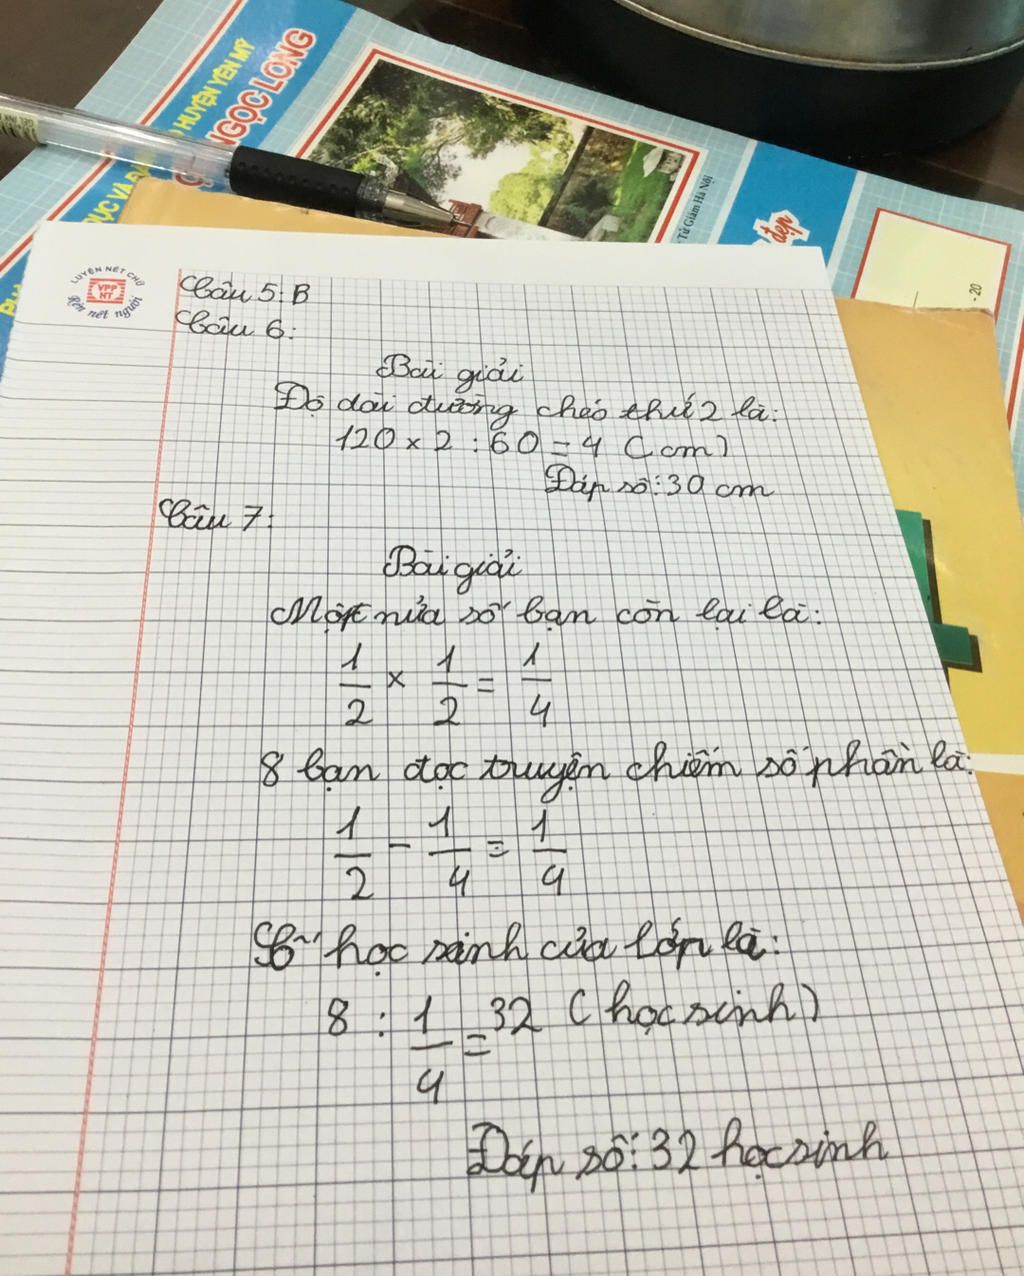 HUYỆN YÊN MỸ
NGỌC LONG
Tử Giám Hà Nội
đẹp
- 20
LUYỆN NÉT CHỮ
VPP
HT
Rèn nết người
Câu 5: B
Câu 6:
Bài giải
Độ dài đường chéo thứ 2 là:
120 × 2 : 60 = 4 (cm)
Đáp số: 30 cm
Câu 7:
Bài giải
Một nửa số bạn còn lại là:
1/2 × 1/2 = 1/4
8 bạn đọc truyện chiếm số phần là:
1/2 - 1/4 = 1/4
Số học sinh của lớp là:
8 : 1/4 = 32 (học sinh)
Đáp số: 32 học sinh